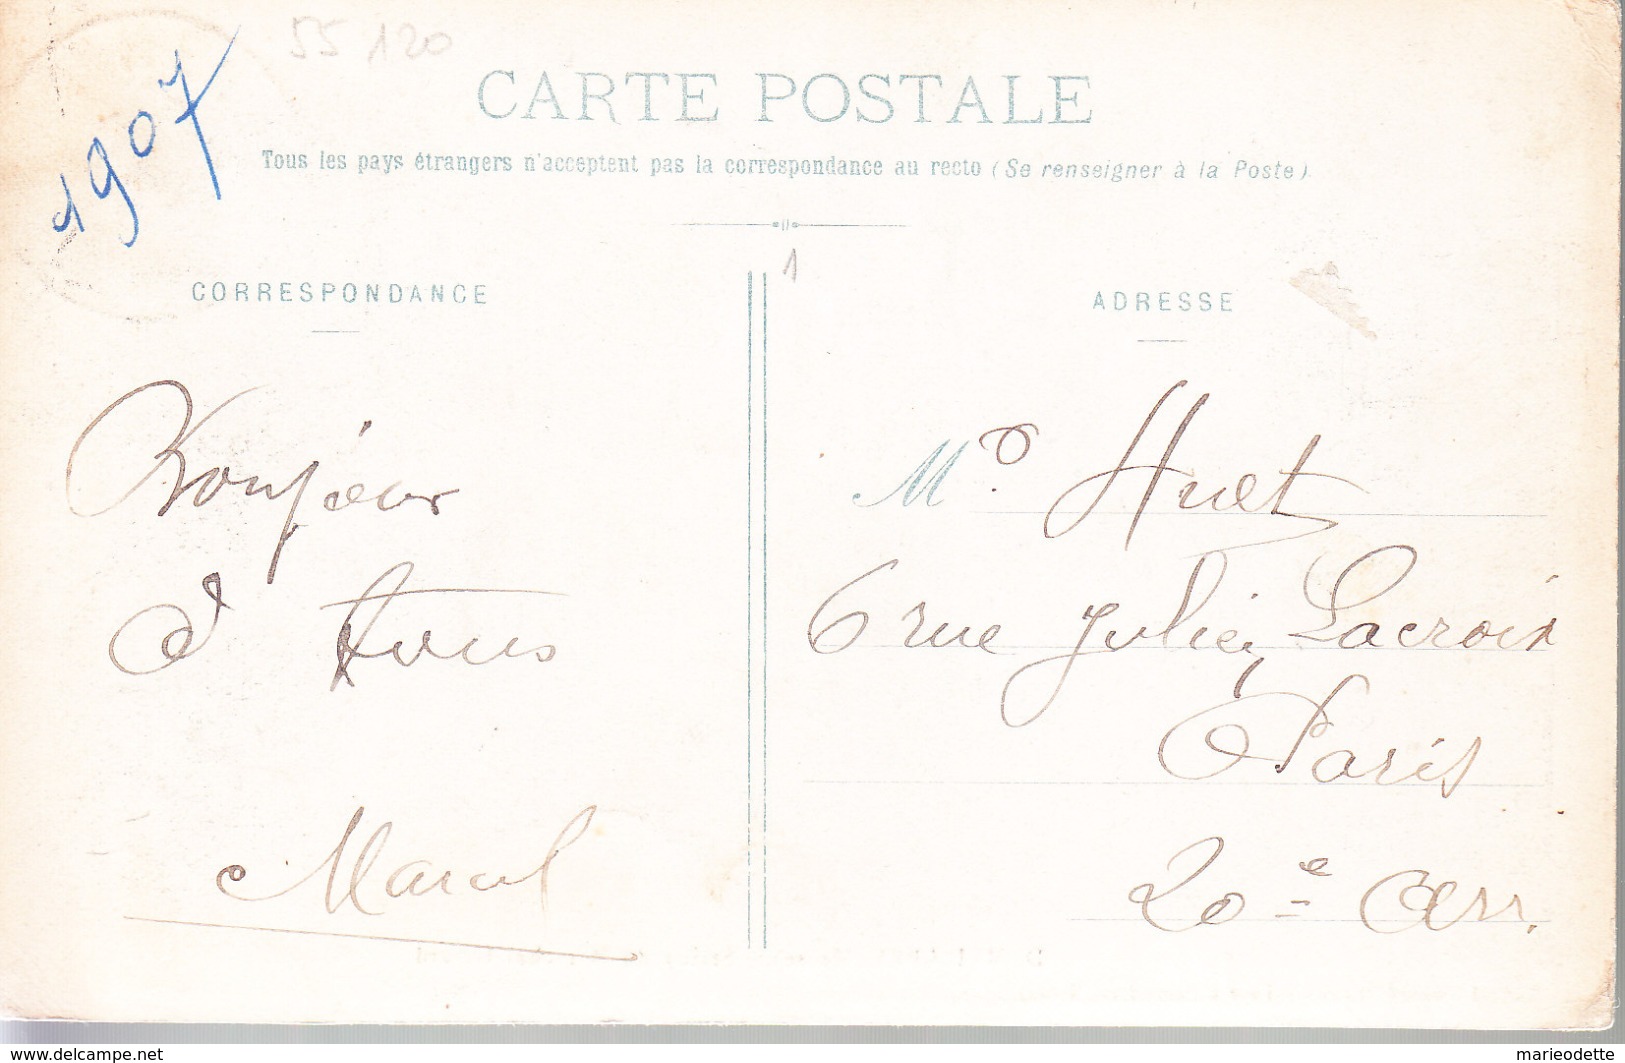 55 120
1907
CARTE POSTALE
Tous les pays étrangers n'acceptent pas la correspondance au recto (Se renseigner à la Poste)
1
CORRESPONDANCE
Bonjour
à tous
Marcel
ADRESSE
M<sup>r</sup> Huet
6 rue Julien Lacroix
Paris
20<sup>e</sup> Arr.
www.delcampe.net
marieodette